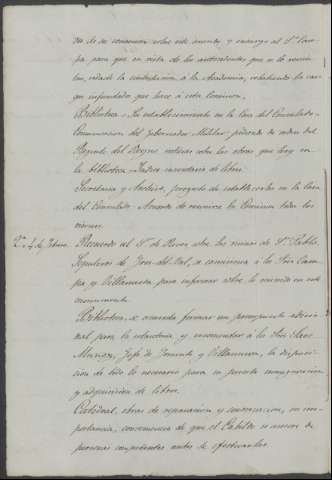 do de su contenido sobre este asunto y encarga al Sr. Cam-
pa para que en vista de los antecedentes que se le remi-
tan, redacte la contestacion a la Academia, rebatiendo la car-
go infundado que hace a esta Comision.
Biblioteca. Su establecimiento en la Casa del Consulado.
Comunicacion del Gobernador Militar pidiendo de orden del
Regente del Reyno noticias sobre las obras que hay en
la biblioteca. Indice inventario de libros.
Secretaria y Archivo, proyecto de establecerlos en la Casa
del Consulado. Acuerdo de reunirse la Comision todos los
Id. 4 de Febrero. Recuerdo al Sr. de Reves sobre las ruinas de Sn. Pablo.
Sepulcros de Juan del Val, se comisiona a los Sres. Cam-
pa y Villanueva para informar sobre lo ocurrido en este
monumento.
Biblioteca, se acuerda formar un presupuesto adicio-
nal para la estanteria y encomendar a los Sres.
Munguia, José de y Villanueva, la disposi-
cion de todo lo necesario para su pronta inauguracion
y adquisicion de libros.
Catedral, obras de reparacion y conservacion, su im-
portancia, conveniencia de que el Cabildo se asesore de
personas competentes antes de efectuarlas.